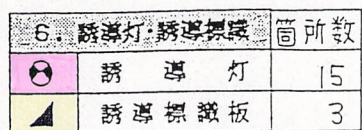 6. 誘導灯・誘導標識 箇所数
誘導灯 15
誘導標識板 3